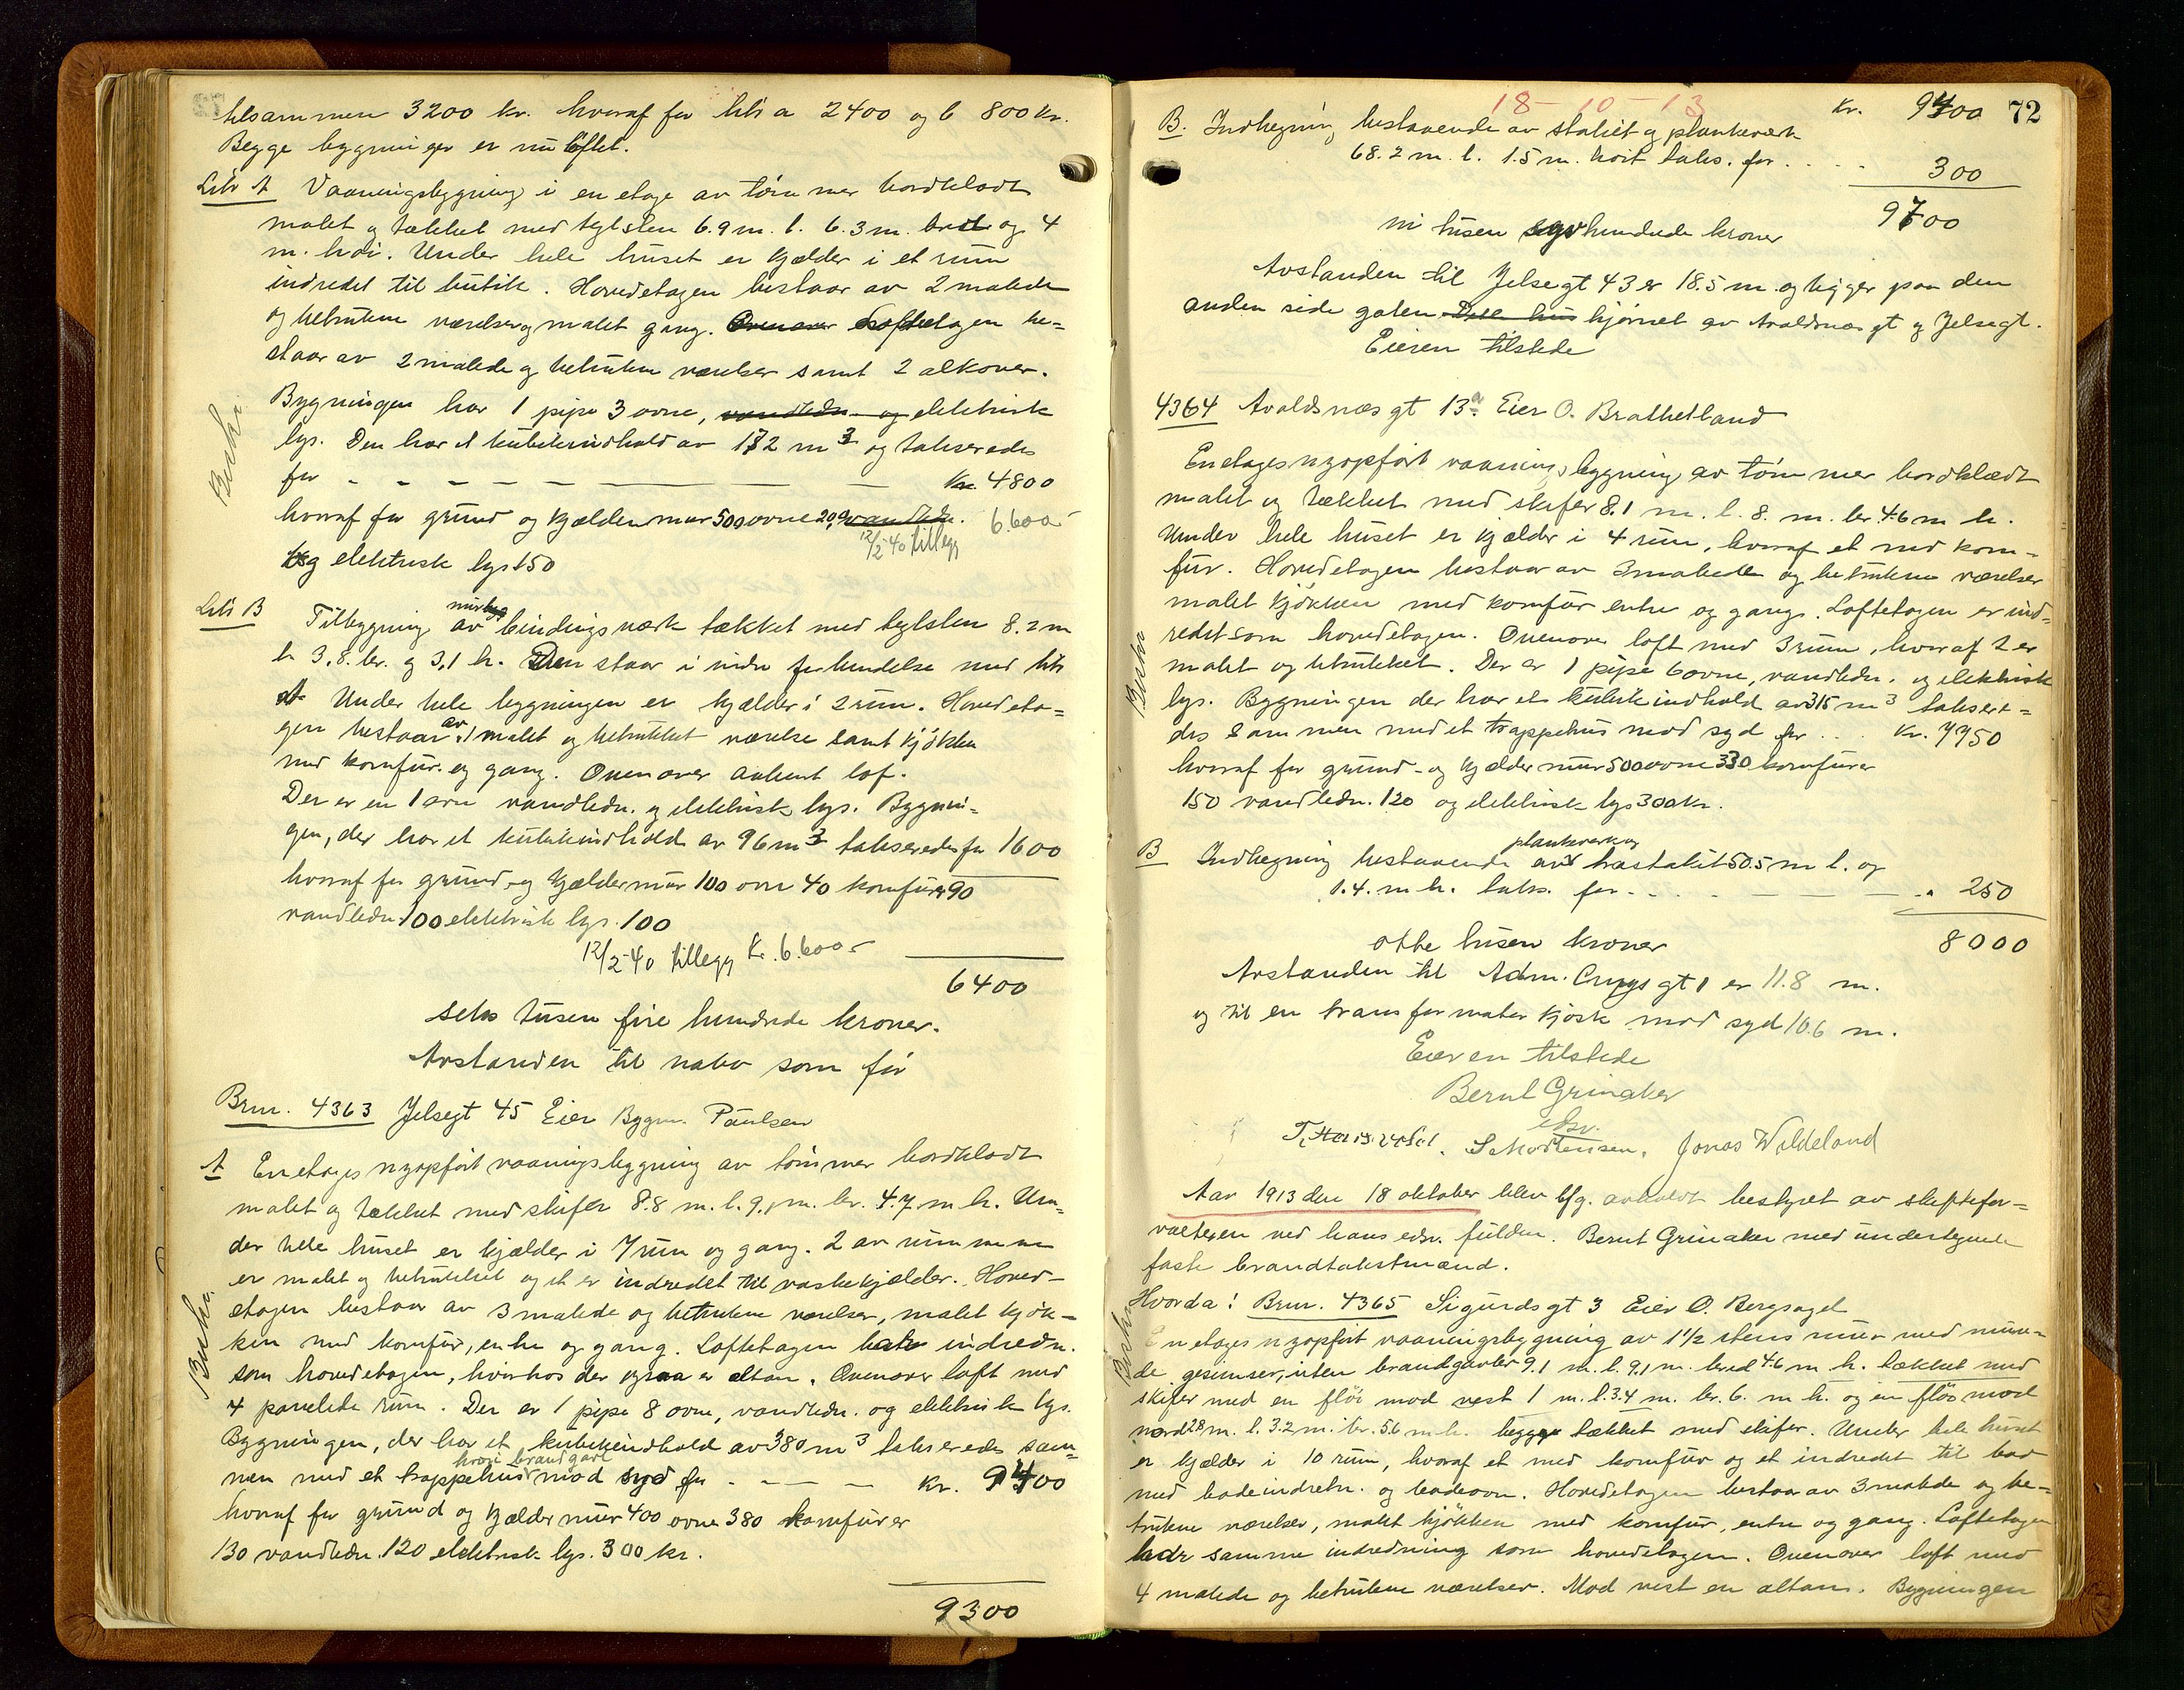 tilsammen 3200 kr. hvoraf for litr a 2400 og b 800 kr.
Begge bygninger er nu löftet.
Litr A Vaaningsbygning i en etage av tömmer bordklædt
malet og tækket med teglsten 6.9 m. l. 6.3 m. bred og 4
m. höi. Under hele huset er kjælder i et rum
indredet til butik. Hovedetagen bestaar av 2 malede
og betrukne værelser og malet gang. Ovenover Loftetagen be=
staar av 2 malede og betrukne værelser samt 2 alkover.
Bygningen har 1 pipe 3 ovne, vandledn. og elektrisk
lys. Den har et kubikindhold av 172 m3 og takseredes
for - - - - - - Kr. 4800
hvoraf for grund og kjældermur 500 ovne 20,9 vandledn. 6.600-
12/2-40 tillegg
og elektrisk lys 150
Litr B Tilbygning av murbyg bindingsværk tækket med teglsten 8.2 m
l. 3.8. br. og 3,1 h. Den staar i indre forbindelse med litr
A Under hele bygningen er kjælder i 2 rum. Hovedeta=
gen bestaar av 1 malet og betrukket værelse samt kjökken
med komfur og gang. Ovenover aapent lof.
Der er en 1 ovn vandledn. og elektrisk lys. Bygnin=
gen, der har et kubikindhold av 96 m3 takseredes for 1600
hvoraf for grund og kjældermur 100 ovn 40 komfurer 90
vandledn. 100 elektrisk lys. 100
12/2-40 tillegg Kr. 6.600-
6400
seks tusen fire hundrede kroner.
Avstanden til nabo som för
Brnr. 4363 Jelsegt 45 Eier Bygm. Paulsen
A En etages nyopfört vaaningsbygning av tömmer bordklædt
malet og tækket med skifer 8.8 m. l. 9.1 m. br. 4.7 m h. Un=
der hele huset er kjælder i 7 rum og gang. 2 av rummene
er malet og betrukket og et er indredet til vaskekjælder. Hoved-
etagen bestaar av 3 malede og betrukne værelser, malet kjök-
ken med komfur, entre og gang. Loftetagen har indredn.
som hovedetagen, hvorhos der ogsaa er altan. Ovenover loft med
4 panelede rum. Der er 1 pipe 8 ovne, vandledn. og elektrisk lys.
Bygningen, der har et kubikindhold av 380 m3 takseredes sam=
hvori brandgavl
men med et trappehus mod syd for - - - kr. 9400
hvoraf for grund og kjældermur 400 ovne 380 komfurer
130 vandledn. 120 elektrisk lys. 300 kr.
9300
72
18-10-13
Kr. 9400
B. Indhegning bestaaende av stakit og plankeværk
68.2 m. l. 1.5 m. höit taks. for . . . . 300
9700
ni tusen syvhundrede kroner
Avstanden til Jelsegt 43 er 18.5 m. og ligger paa den
anden side gaten Dette hus hjörnet av Avaldsnæsgt og Jelsegt.
Eieren tilstede
4364 Avaldsnæs gt 13a. Eier O. Brathetland
En etages nyopfört vaaningsbygning av tömmer bordklædt
malet og tækket med skifer 8.1 m. l. 8. m. br. 4.6 m h.
Under hele huset er kjælder i 4 rum, hvoraf et med kom=
fur. Hovedetagen bestaar av 3 malede og betrukne værelser
malet kjökken med komfur entre og gang. Loftetagen er ind=
redet som hovedetagen. Ovenover loft med 3 rum, hvoraf 2 er
malet og betrukket. Der er 1 pipe 6 ovne, vandledn. og elektrisk
lys. Bygningen der har et kubikindhold av 315 m3 taksere=
des sammen med et trappehus mod syd for . . . Kr. 7750
hvoraf for grund- og kjældermur 500 ovne 330 komfurer
150 vandledn. 120 og elektrisk lys 300 kr.
plankeverk og
B Indhegning bestaaende av stakit 50.5 m l. og
1.4. m h. taks. for - - - - " 250
8000
otte tusen kroner
Avstanden til Adm. Cruys gt 1 er 11.8 m.
og til en transformator kjosk mod syd 10.6 m.
Eieren tilstede
Bernt Grinaker
edsv.
S. Mortensen. Jonas Wildeland
Aar 1913 den 18 oktober blev bfg. avholdt bestyret av skiftefor=
valteren ved hans edsv. fuldm. Bernt Grinaker med undertegnede
faste brandtakstmænd.
Hvorda! Brnr. 4365 Sigurdsgt 3 Eier O. Bergsagel
En etages nyopfört vaaningsbygning av 1 1/2 stens mur med mure=
de gesimser, uten brandgavler 9.1 m. l. 9.1 m. bred 4.6 m h. tækket med
skifer med en flöi mod vest 1 m. l. 3.4 m. br. 6. m h. og en flöi mod
nord 2.8 m. l. 3.2 m. br. 5.6 m h. begge tækket med skifer. Under hele huset
er kjælder i 10 rum, hvoraf et med komfur og et indredet til bad
med badeindretn. og badeovn. Hovedetagen bestaar av 3 malede og be=
trukne værelser, malet kjökken med komfur, entre og gang. Loftetagen
har samme indredning som hovedetagen. Ovenover loft med
4 malede og betrukne værelser. Mod vest en altan. Bygningen